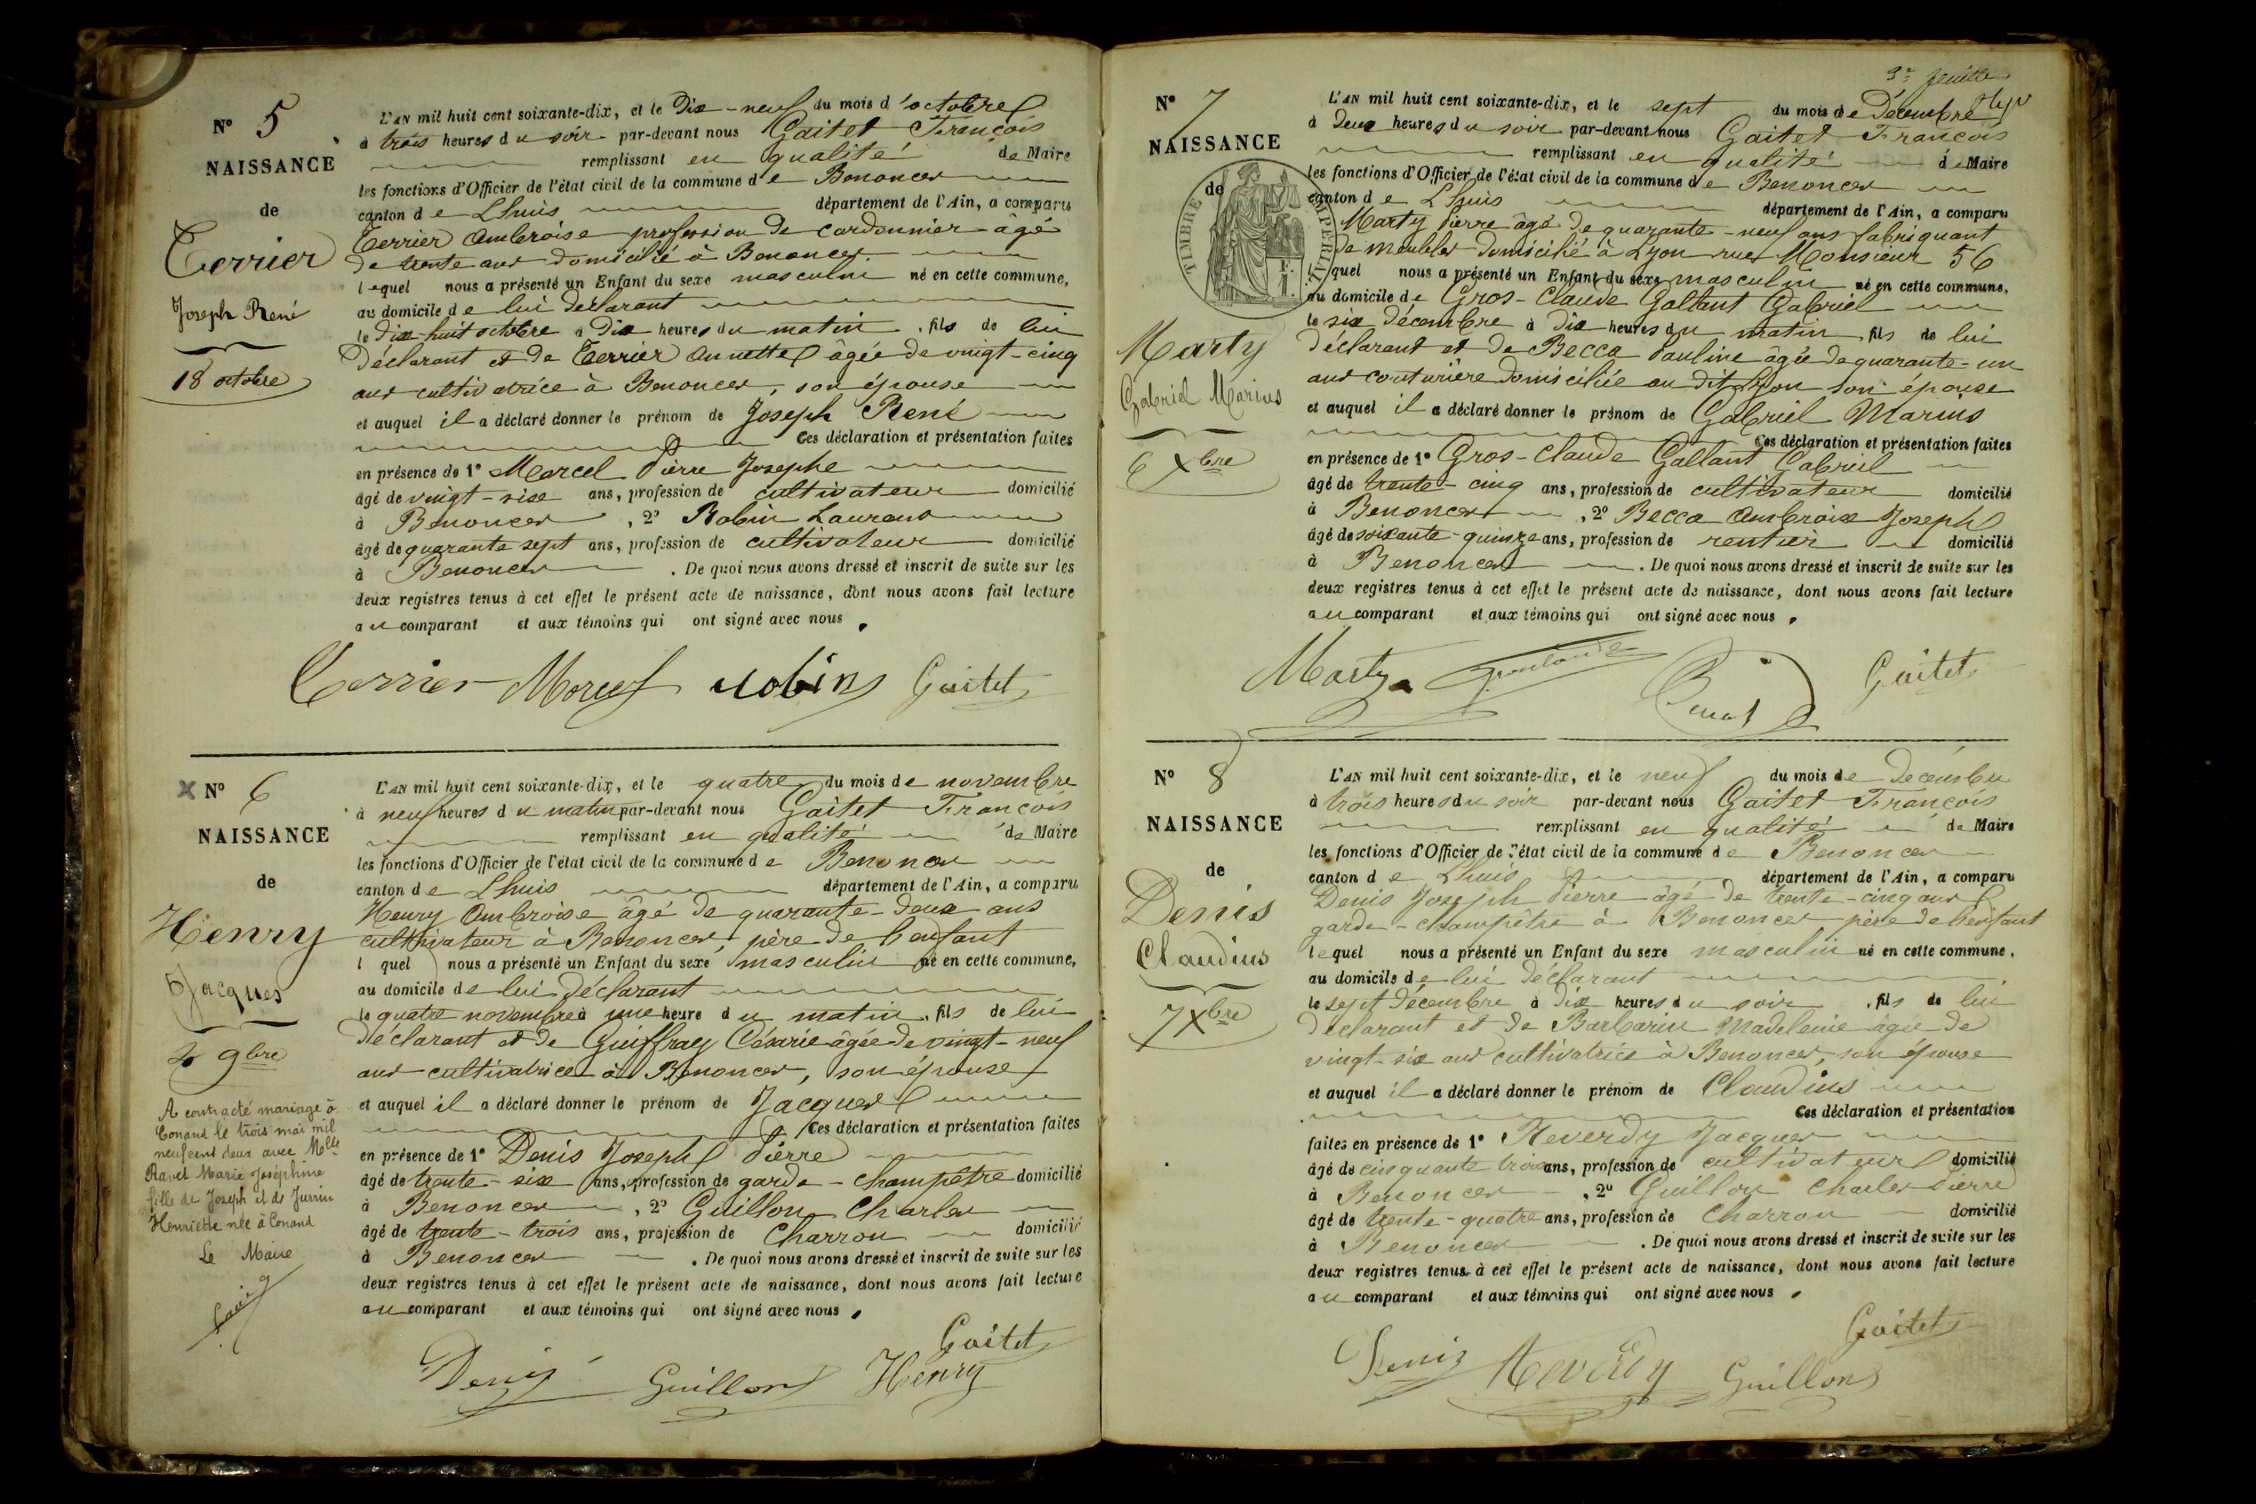 N° 5
NAISSANCE
de
Terrier
Joseph René
18 octobre
L'AN mil huit cent soixante-dix, et le Dix-neuf du mois d'octobre
à trois heures du soir par-devant nous Gaitet François
remplissant en qualité de Maire
les fonctions d'Officier de l'état civil de la commune de Benonces
canton de Lhuis département de l'Ain, a comparu
Terrier Ambroise profession de cordonnier âgé
de trente ans domicilié à Benonces
lequel nous a présenté un Enfant du sexe masculin né en cette commune,
au domicile de lui déclarant
le dix-huit octobre à Dix heures du matin, fils de lui
Déclarant et de Terrier Annette âgée de vingt-cinq
ans cultivatrice à Benonces, son épouse
et auquel il a déclaré donner le prénom de Joseph René
Ces déclaration et présentation faites
en présence de 1° Marcel Pierre Josephe
âgé de vingt-six ans, profession de cultivateur domicilié
à Benonces, 2° Robin Laurent
âgé de quarante sept ans, profession de cultivateur domicilié
à Benonces. De quoi nous avons dressé et inscrit de suite sur les
deux registres tenus à cet effet le présent acte de naissance, dont nous avons fait lecture
au comparant et aux témoins qui ont signé avec nous.
Terrier Marcel robin Gaitet
X N° 6
NAISSANCE
de
Henry
Jacques
4 9bre
A contracté mariage à
Conand le trois mai mil
neuf cent deux avec Melle
Ravet Marie Joséphine
fille de Joseph et de Juvin
Henriette née à Conand
Le Maire
L'AN mil huit cent soixante-dix, et le quatre du mois de novembre
à neuf heures du matin par-devant nous Gaitet François
remplissant en qualité de Maire
les fonctions d'Officier de l'état civil de la commune de Benonces
canton de Lhuis département de l'Ain, a comparu
Henry Ambroise âgé de quarante-deux ans
cultivateur à Benonces, père de l'enfant
l quel nous a présenté un Enfant du sexe masculin né en cette commune,
au domicile de lui déclarant
le quatre novembre à une heure du matin, fils de lui
déclarant et de Guiffray Césarie âgée de vingt-neuf
ans cultivatrice à Benonces, son épouse
et auquel il a déclaré donner le prénom de Jacques
Ces déclaration et présentation faites
en présence de 1° Denis Joseph Pierre
âgé de trente-six ans, profession de garde-champêtre domicilié
à Benonces, 2° Guillon Charles
âgé de trente-trois ans, profession de Charron domicilié
à Benonces. De quoi nous avons dressé et inscrit de suite sur les
deux registres tenus à cet effet le présent acte de naissance, dont nous avons fait lecture
au comparant et aux témoins qui ont signé avec nous.
Gaitet
Denis Guillon Henry
3e feuille
N° 7
NAISSANCE
de
TIMBRE IMPÉRIAL
Marty
Gabriel Marius
6 Xbre
L'AN mil huit cent soixante-dix, et le sept du mois de Décembre
à Deux heures du soir par-devant nous Gaitet François
remplissant en qualité de Maire
les fonctions d'Officier de l'état civil de la commune de Benonces
canton de Lhuis département de l'Ain, a comparu
Marty Pierre âgé de quarante-neuf ans fabriquant
de meubles domicilié à Lyon rue Monsieur 56
lequel nous a présenté un Enfant du sexe masculin né en cette commune,
au domicile de Gros-Claude Gallant Gabriel
le six décembre à Dix heures du matin, fils de lui
déclarant et de Becca Pauline âgée de quarante-un
ans couturière domiciliée au dit Lyon son épouse
et auquel il a déclaré donner le prénom de Gabriel Marius
Ces déclaration et présentation faites
en présence de 1° Gros-Claude Gallant Gabriel
âgé de trente-cinq ans, profession de cultivateur domicilié
à Benonces, 2° Becca Ambroise Joseph
âgé de soixante-quinze ans, profession de rentier domicilié
à Benonces. De quoi nous avons dressé et inscrit de suite sur les
deux registres tenus à cet effet le présent acte de naissance, dont nous avons fait lecture
au comparant et aux témoins qui ont signé avec nous.
Marty Gaitet
N° 8
NAISSANCE
de
Denis
Claudius
7 Xbre
L'AN mil huit cent soixante-dix, et le neuf du mois de Décembre
à trois heures du soir par-devant nous Gaitet François
remplissant en qualité de Maire
les fonctions d'Officier de l'état civil de la commune de Benonces
canton de Lhuis département de l'Ain, a comparu
Denis Joseph Pierre âgé de trente-cinq ans
garde-champêtre à Benonces père de l'enfant
lequel nous a présenté un Enfant du sexe masculin né en cette commune,
au domicile de lui déclarant
le sept décembre à dix heures du soir, fils de lui
déclarant et de Barbarin Madeleine âgée de
vingt-six ans cultivatrice à Benonces, son épouse
et auquel il a déclaré donner le prénom de Claudius
Ces déclaration et présentation
faites en présence de 1° Reverdy Jacques
âgé de cinquante trois ans, profession de cultivateur domicilié
à Benonces, 2° Guillon Charles Pierre
âgé de trente-quatre ans, profession de Charron domicilié
à Benonces. De quoi nous avons dressé et inscrit de suite sur les
deux registres tenus à cet effet le présent acte de naissance, dont nous avons fait lecture
au comparant et aux témoins qui ont signé avec nous.
Gaitet
Deniz Reverdy Guillon